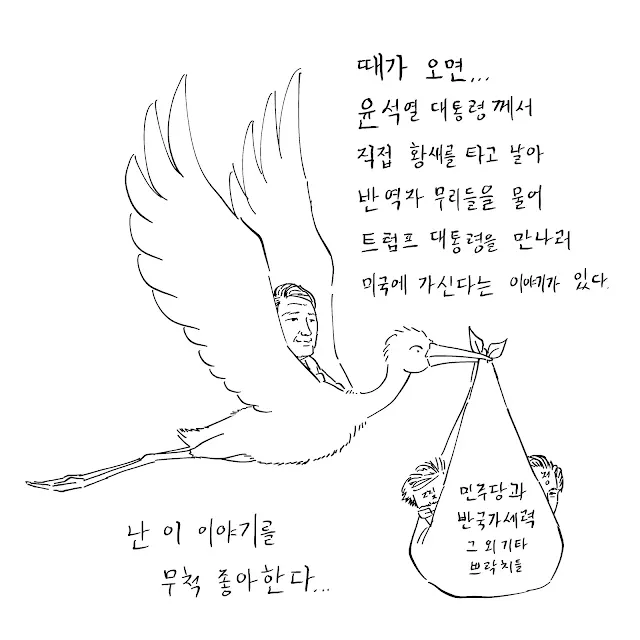 때가 오면...
윤석열 대통령께서
직접 황새를 타고 날아
반역자 무리들을 물어
트럼프 대통령을 만나러
미국에 가신다는 이야기가 있다.
민주당과
반국가세력
그 외 기타
쁘락치들
난 이 이야기를
무척 좋아한다...